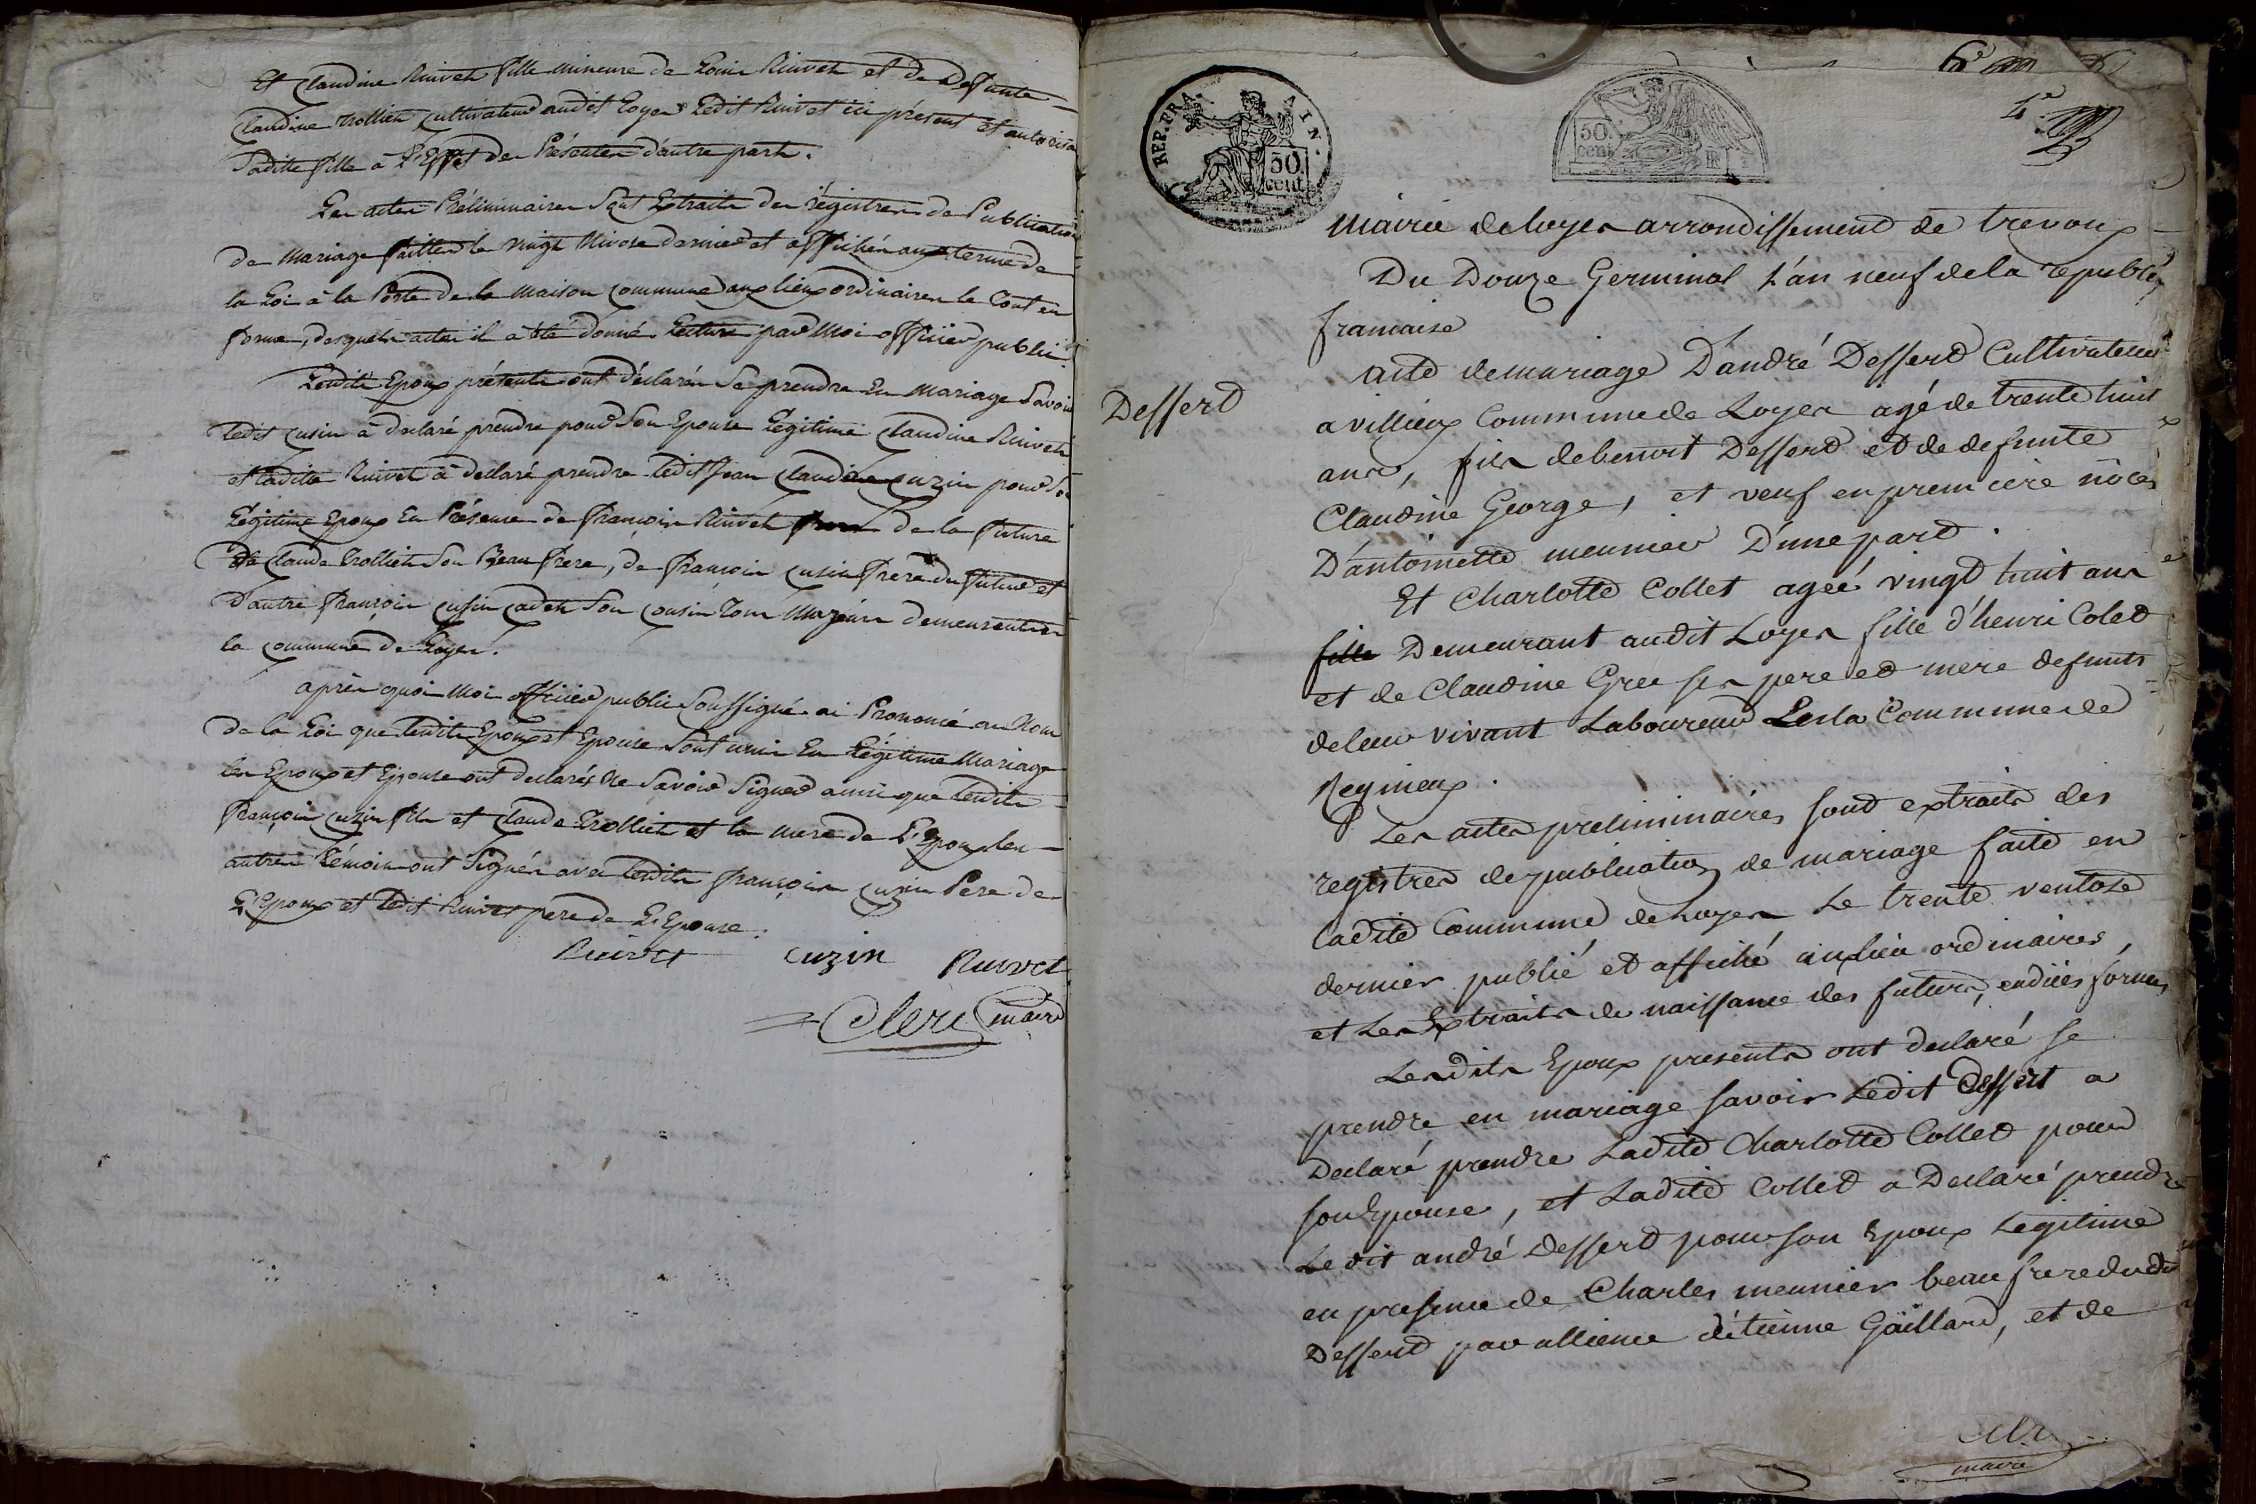 Et Claudine Ruivet fille mineure de Louis Ruivet et de Defunte
Claudine trollier cultivateur audit Loyes Ledit Ruivet ici présent et autorisa
Sadite fille à L'Effet des Présentes d'autre part.
Les actes Préliminaires Sont Extraits des régistres de Publication
de Mariage faittes le vingt Nivose dernier et affichés aux termes de
la Loi à la Porte de la Maison Commune aux lieux ordinaires le Tout en
forme, desquels actes il a été donné Lecture par Moi officier public
Lesdits Epoux présents ont déclarés Se prendre En Mariage Savoir
Ledit Cusin à declaré prendre pour Son Epouse Légitime Claudine Ruivet
et Ladite Ruivet à declaré prendre Ledit Jean Claudine Cuzin pour Son
Légitime Epoux En Présence de françois Ruivet de la future
de Claude Trollier Son Beau frere, de françois Cusin frere du futur et
d'autre françois Cusin Cadet Son Cousin Tous Majeurs demeurant en
la Commune de Loyes.
après quoi Moi officier public Soussigné ai Prononcé au Nom
de la Loi que Lesdits Epoux et Epouse Sont unis En Légitime Mariage
les Epoux et Epouse ont declarés Ne Savoir Signer ainsi que Lesdits
françois Cuzin fils et Claude Trollier et la mere de L'Epoux les
autres Témoins ont Signés avec Lesdits françois Cuzin Pere de
L'Epoux et Ledit Ruivet pere de L'Epouse.
Ruivet Cuzin Ruivet
Clerc maire
REP. FRA. AIN.
50
cent
50
cent
Mairie de loyes arrondissement de trevoux
Du Douze Germinal L'an neuf de la republiq
francaise
Dessert
acte de mariage D'andré Dessert Cultivateur
a villieux Commune de Loyes agé de trente huit
ans, fils de benoit Dessert et de defunte
Claudine George, et veuf en premiere nôces
D'antoinette meunier D'une part.
Et Charlotte Collet ageé vingt huit ans
fille Demeurant audit Loyes fille d'henri Colet
et de Claudine Gree ses pere et mere defunts
de leur vivant Laboureur En la Commune de
Regnieux.
Les actes preliminaires sont extraits des
registres de publication de mariage faite en
ladite Commune de Loyes Le trente ventose
dernier publié et affiché au lieu ordinaires,
et Les Extraits de naissance des futurs, en dües formes
Lesdits Epoux presents ont declaré se
prendre en mariage savoir Ledit Dessert a
Declaré prendre Ladite Charlotte Collet pour
son Epouse, et Ladite Collet a Declaré prendre
Le dit andré Dessert pour son Epoux Legitime
en presence de Charles meunier beau frere dudit
Dessert par allience d'étienne Gaillard, et de
maire